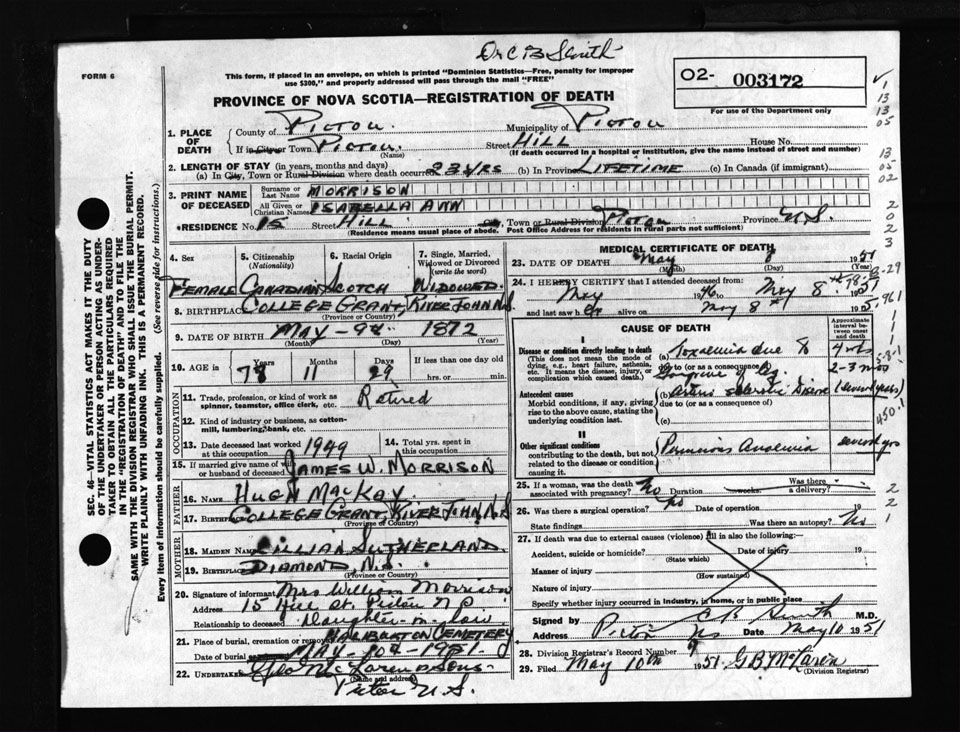 Dr C B Smith
FORM 6
This form, if placed in an envelope, on which is printed "Dominion Statistics—Free, penalty for improper
use $300," and properly addressed will pass through the mail "FREE"
02- 003172
For use of the Department only
PROVINCE OF NOVA SCOTIA—REGISTRATION OF DEATH
1. PLACE OF DEATH
County of PICTOU. Municipality of PICTOU
If in City or Town PICTOU. (Name) Street HILL House No.
(If death occurred in a hospital or institution, give the name instead of street and number)
2. LENGTH OF STAY (in years, months and days)
(a) In City, Town or Rural Division where death occurred 23 YRS (b) In Province LIFETIME (c) In Canada (if immigrant)
3. PRINT NAME OF DECEASED
Surname or Last Name MORRISON
All Given or Christian Names ISABELLA ANN
*RESIDENCE No. 15 Street HILL City, Town or Rural Division PICTOU Province N.S.
(Residence means usual place of abode. Post Office Address for residents in rural parts not sufficient)
4. Sex 5. Citizenship (Nationality) 6. Racial Origin 7. Single, Married, Widowed or Divorced (write the word)
FEMALE CANADIAN SCOTCH WIDOWED
8. BIRTHPLACE COLLEGE GRANT, RIVER JOHN N.S.
(Province or Country)
9. DATE OF BIRTH MAY - 9th 1872
(Month) (Day) (Year)
10. AGE in Years Months Days If less than one day old
78 11 29 hrs. or min.
OCCUPATION
11. Trade, profession, or kind of work as spinner, teamster, office clerk, etc. Retired
12. Kind of industry or business, as cotton-mill, lumbering, bank, etc.
13. Date deceased last worked at this occupation 1949 14. Total yrs. spent in this occupation
15. If married give name of wife or husband of deceased JAMES W. MORRISON
FATHER
16. Name HUGH MACKAY
17. Birthplace COLLEGE GRANT, RIVER JOHN N.S.
(Province or Country)
MOTHER
18. Maiden Name LILLIAN SUTHERLAND
19. Birthplace DIAMOND, N.S.
(Province or Country)
20. Signature of informant Mrs William Morrison
Address 15 Hill St. Pictou N.S.
Relationship to deceased Daughter-in-law
21. Place of burial, cremation or removal HALIBURTON CEMETERY
Date of burial MAY - 10th - 1951.
22. UNDERTAKER McLaren & Sons
(Name and address)
Pictou N.S.
SEC. 46—VITAL STATISTICS ACT MAKES IT THE DUTY
OF THE UNDERTAKER OR PERSON ACTING AS UNDER-
TAKER TO OBTAIN ALL THE PARTICULARS REQUIRED
IN THE "REGISTRATION OF DEATH" AND TO FILE THE
SAME WITH THE DIVISION REGISTRAR WHO SHALL ISSUE THE BURIAL PERMIT.
WRITE PLAINLY WITH UNFADING INK. THIS IS A PERMANENT RECORD.
Every item of information should be carefully supplied. (See reverse side for instructions.)
MEDICAL CERTIFICATE OF DEATH
23. DATE OF DEATH May 8 1951
(Month) (Day)
24. I HEREBY CERTIFY that I attended deceased from:
May 1946 to May 8th 1951
and last saw her alive on May 8th 1951
CAUSE OF DEATH
Approximate interval between onset and death
I
Disease or condition directly leading to death (a) Toxaemia due to
(This does not mean the mode of dying, e.g., heart failure, asthenia, etc. It means the disease, injury, or complication which caused death.)
due to (or as a consequence of) Gangrene of leg 2-3 mos
Antecedent causes (b) Arterio sclerotic Disease (several years)
Morbid conditions, if any, giving rise to the above cause, stating the underlying condition last.
due to (or as a consequence of)
(c)
II
Other significant conditions contributing to the death, but not related to the disease or condition causing it.
Pernicious Anaemia several yrs
25. If a woman, was the death associated with pregnancy? No Duration weeks. Was there a delivery?
26. Was there a surgical operation? No Date of operation 19
State findings Was there an autopsy? No
27. If death was due to external causes (violence) fill in also the following:
Accident, suicide or homicide? (State which) Date of injury 19
Manner of injury (How sustained)
Nature of injury
Specify whether injury occurred in industry, in home, or in public place
Signed by C B Smith M.D.
Address Pictou NS Date May 10 1951
28. Division Registrar's Record Number 9
29. Filed May 10th 1951 G.B. McLaren
(Division Registrar)
1
13
13
05
13
05
02
2
0
2
3
B-29
961
1
1
1
450.1
2
2
1